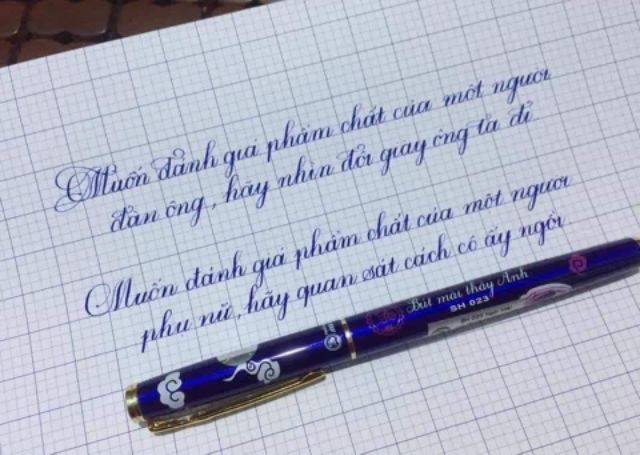 Muốn đánh giá phẩm chất của một người
đàn ông, hãy nhìn đôi giày ông ta đi
Muốn đánh giá phẩm chất của một người
phụ nữ, hãy quan sát cách cô ấy ngồi
Bút mài thầy Ánh
SH 023